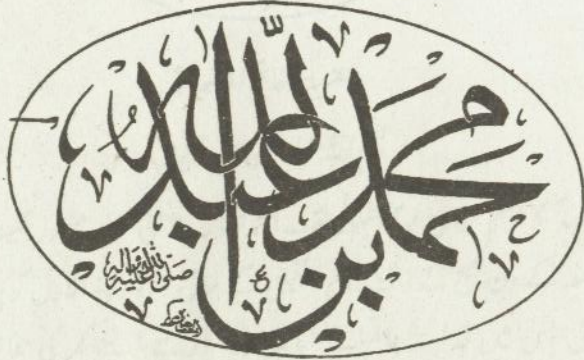 محمد بن عبد الله
صلى الله عليه وآله